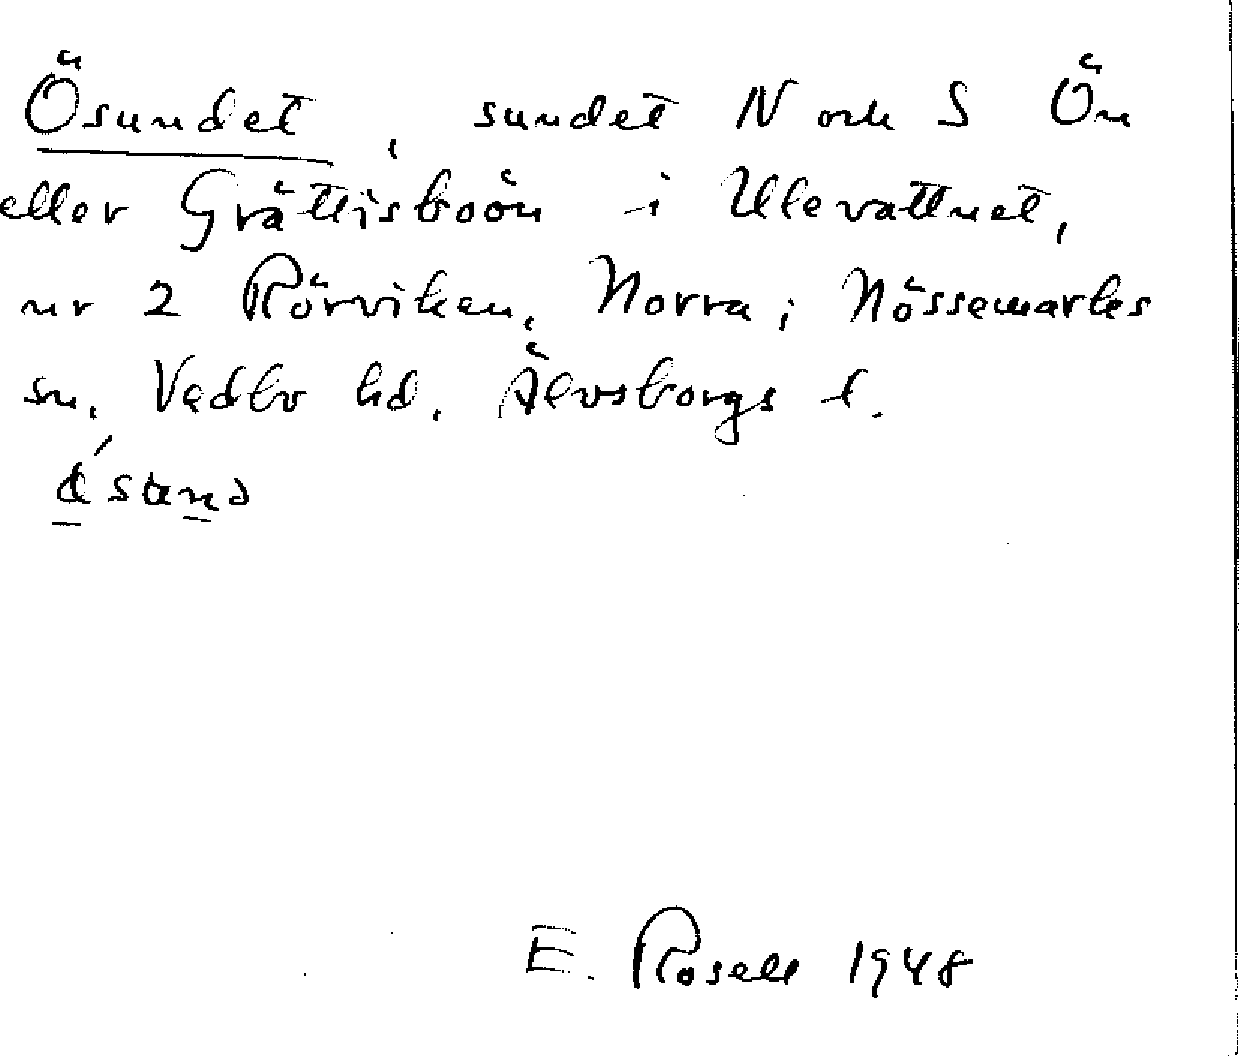 Ösundet, sundet N och S Ön
eller Grättisboön i Ulevattnet,
nr 2 Rörviken, Norra; Nössemarks
sn. Vedbo hd. Älvsborgs l.
E. Rosell 1948